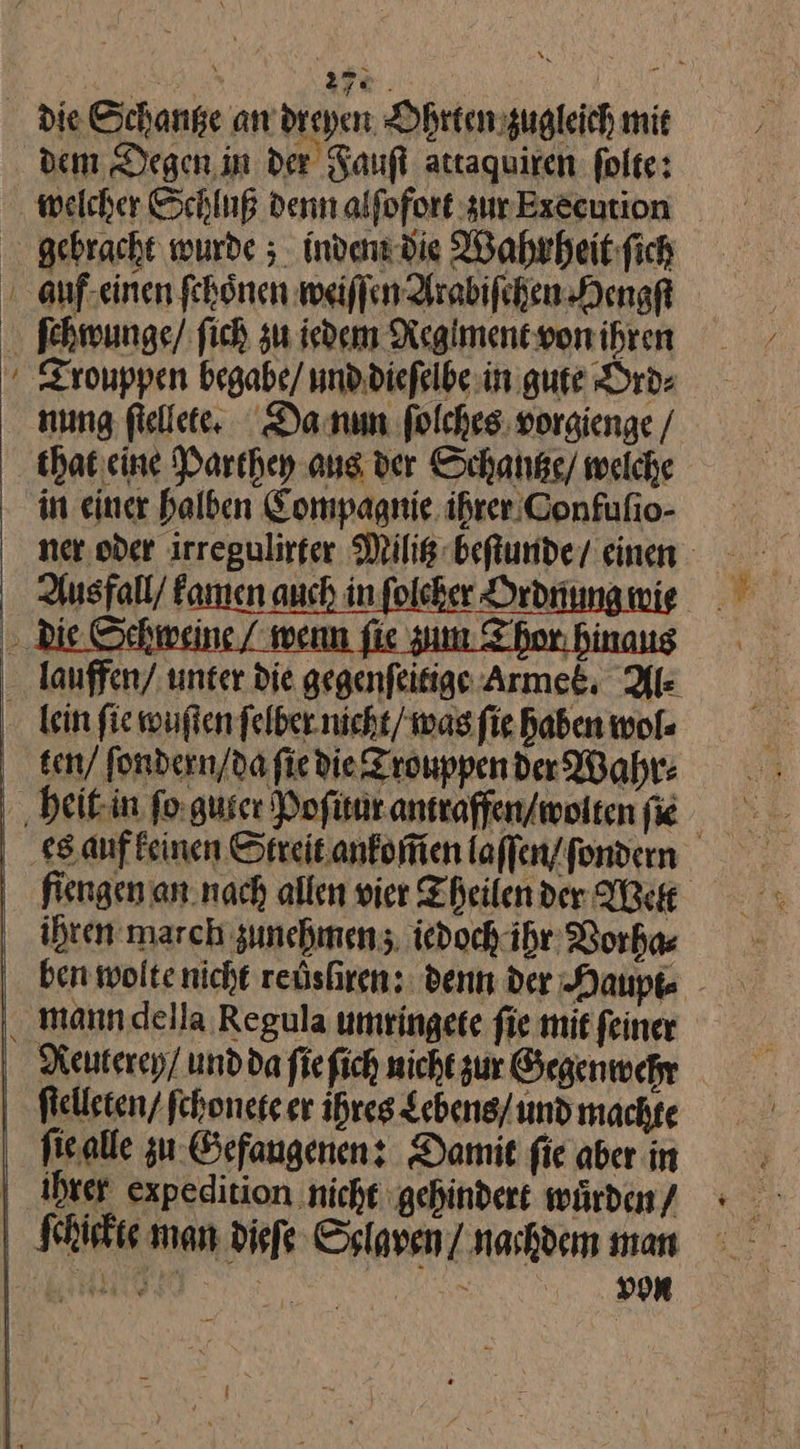 27.
die Schantze an dreyen Ohrten zugleich mit
dem Degen in der Fauſt attaquiren ſolte:
welcher Schluß denn alſofort zur Execution
gebracht wurde; indem die Wahrheit ſich
auf einen ſchoͤnen weiſſen Arabiſchen Hengſt
ſchwunge/ ſich zu iedem Regiment von ihren
Trouppen begabe/ und dieſelbe in gute Ord⸗
nung ſtellete. Da nun ſolches vorgienge/
that eine Parthey aus der Schantze/ welche
in einer halben Compagnie ihrer Confuſio-
ner oder irregulirter Militz beſtunde/ einen
Ausfall/ kamen auch in ſolcher Ordnung wie
die Schweine/ wenn ſie zum Thor hinaus
lauffen/ unter die gegenſeitige Armeé. Al⸗
lein ſie wuſten ſelber nicht/ was ſie haben wol⸗
ten/ ſondern/ da ſie die Trouppen der Wahr⸗
heit in ſo guter Poſitur antraffen/ wolten ſie
es auf keinen Streit ankom̃en laſſen/ ſondern
fiengen an nach allen vier Theilen der Welt
ihren march zunehmen; iedoch ihr Vorha⸗
ben wolte nicht reüsſiren: denn der Haupt⸗
mann della Regula umringete ſie mit ſeiner
Reuterey/ und da ſie ſich nicht zur Gegenwehr
ſtelleten/ ſchonete er ihres Lebens/ und machte
ſie alle zu Gefangenen: Damit ſie aber in
ihrer expedition nicht gehindert wuͤrden/
ſchickte man dieſe Sclaven/ nachdem man
von